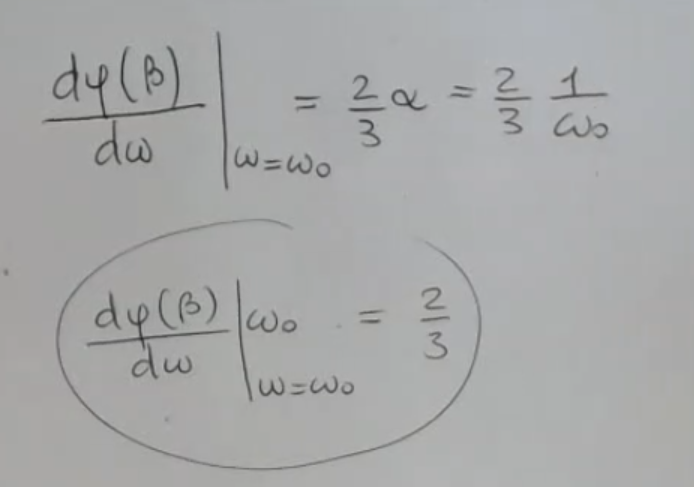 dφ(β)/dω |ω=ω₀ = 2/3 α = 2/3 1/ω₀
dφ(β)/dω |ω=ω₀ ω₀ = 2/3